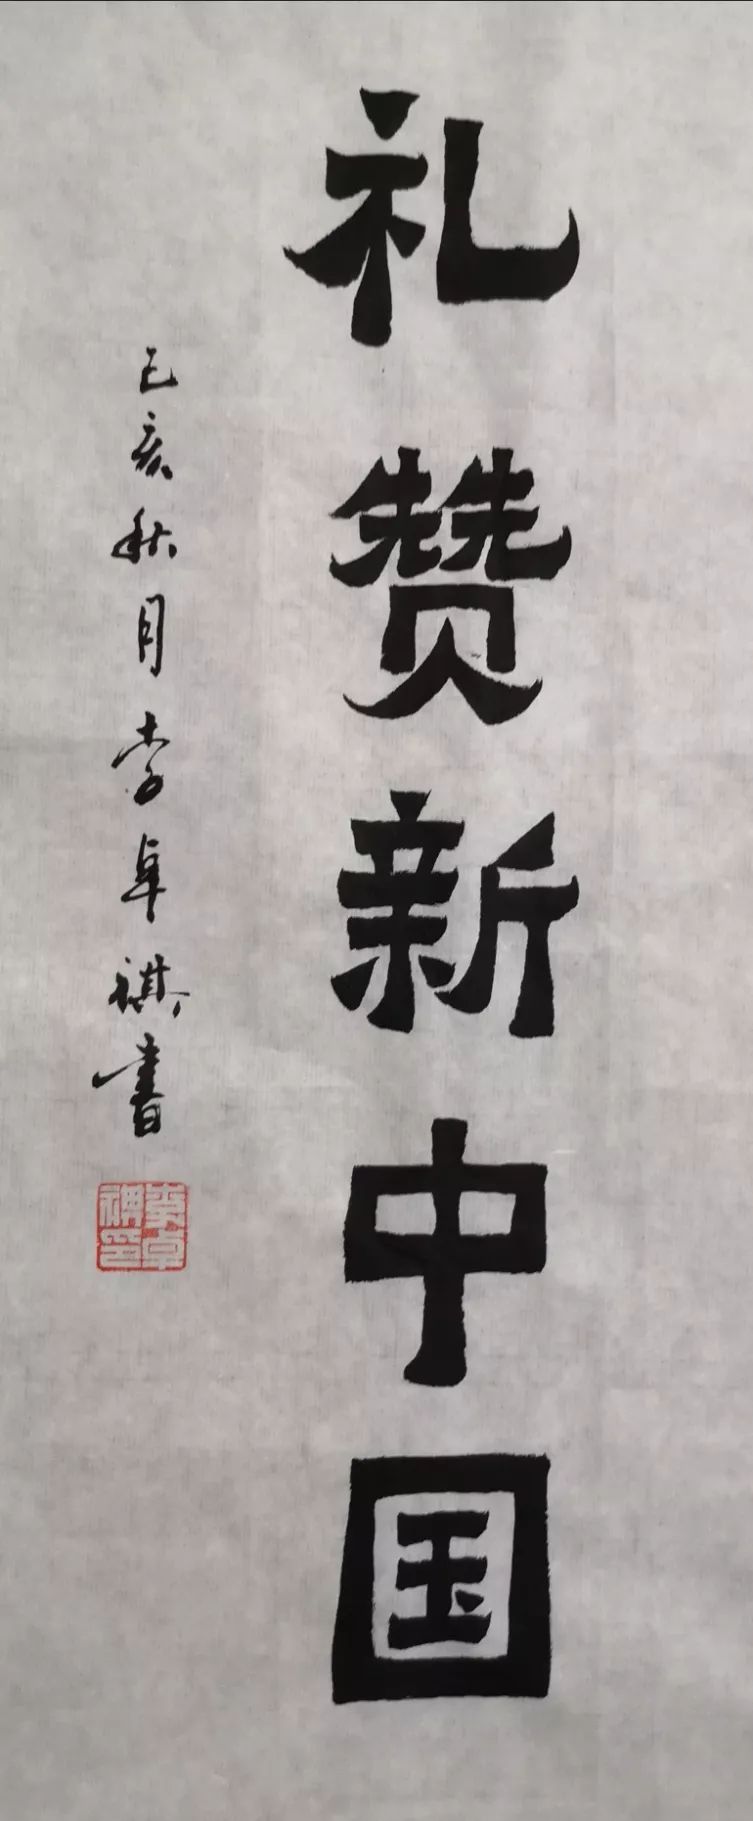 礼赞新中国
己亥秋月李卓祺书
李卓
祺印